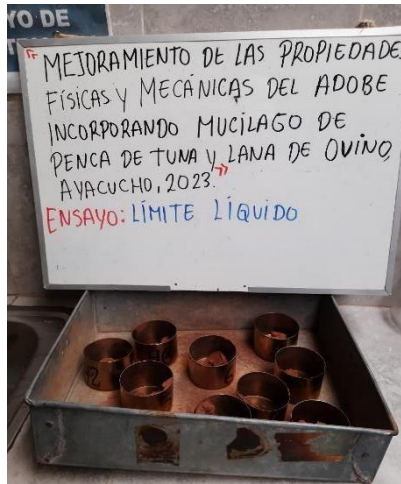 YO DE
"MEJORAMIENTO DE LAS PROPIEDADES
FÍSICAS Y MECÁNICAS DEL ADOBE
INCORPORANDO MUCILAGO DE
PENCA DE TUNA Y LANA DE OVINO,
AYACUCHO, 2023."
ENSAYO: LÍMITE LÍQUIDO